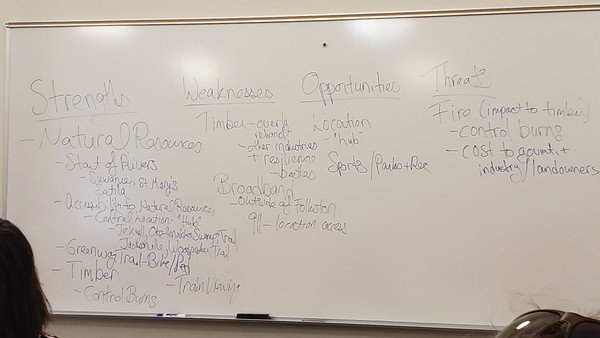 Strengths
- Natural Resources
- Start of Rivers
- Suwanee, St. Mary's
Satilla
- Accessibility to Natural Resources
- Central location - "Hub"
- Jekyll, Okefenokee Swamp Trail
Jacksonville, Woodpecker Trail
- Greenway Trail - Bike/Ped
- Timber
- Control Burns
- Train Viewing
Weaknesses
Timber - overly
reliant
- other industries
+ resilience
- beetles
Broadband
- Outside of Folkston
911 - location across
Opportunities
Location
- "hub"
Sports/Parks + Rec
Threats
Fire (impact to timber)
- control burns
- cost to govmt. +
industry/landowners